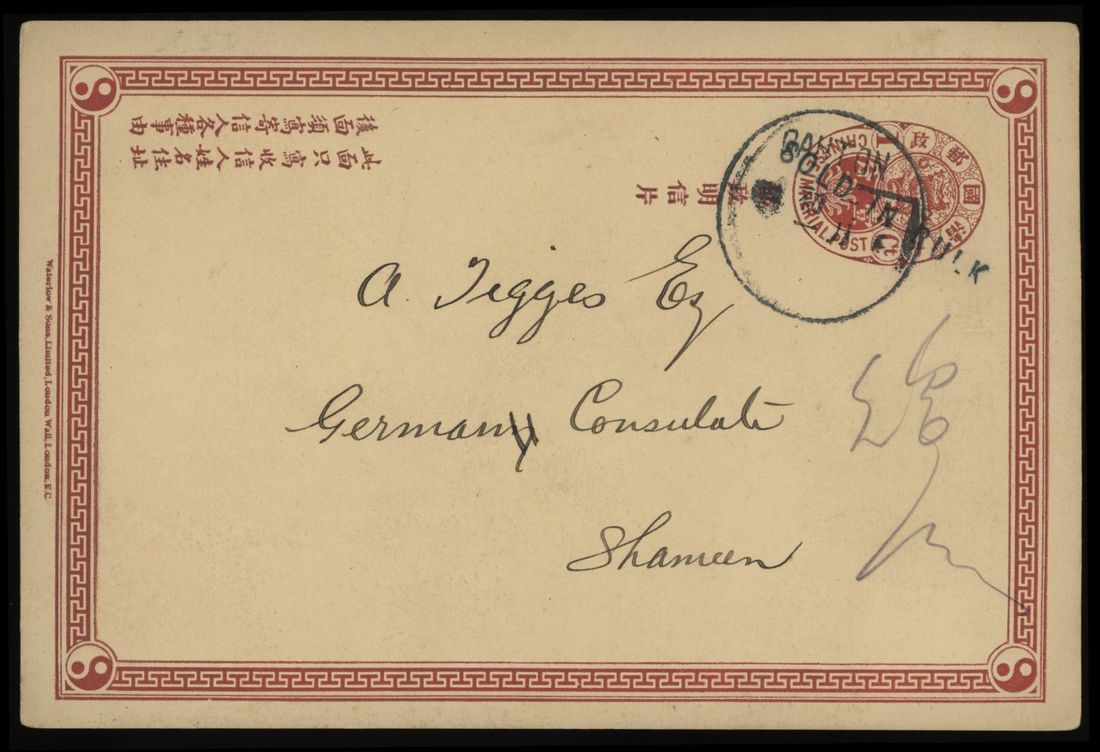 此面只寫收信人姓名住址
後面須寫寄信人各種事由
明信片
清國郵政
IMPERIAL POST
1 Ct
CANTON
SOLD IN BULK
A. Tigges Esq
German Consulate
Shameen
Waterlow & Sons, Limited, London Wall, London, E.C.